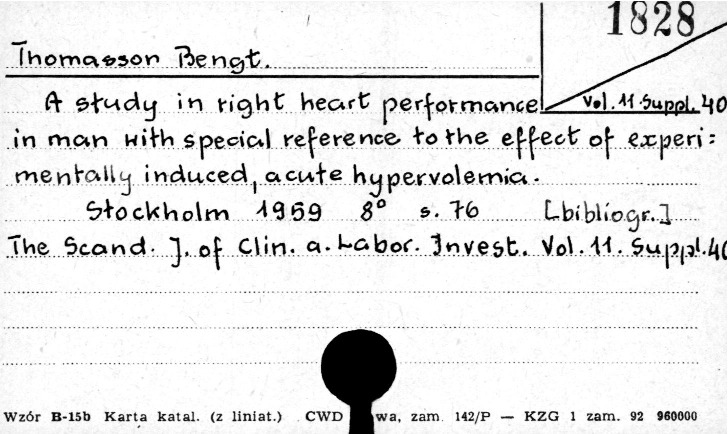 1828
Thomasson Bengt.
A study in right heart performance Vol. 11. Suppl. 40
in man with special reference to the effect of experi=
mentally induced, acute hypervolemia.
Stockholm 1959 8° s. 76 [bibliogr.]
The Scand. J. of Clin. a. Labor. Invest. Vol. 11. Suppl. 40
Wzór B-15b Karta katal. (z liniat.) CWD wa, zam. 142/P — KZG 1 zam. 92 960000